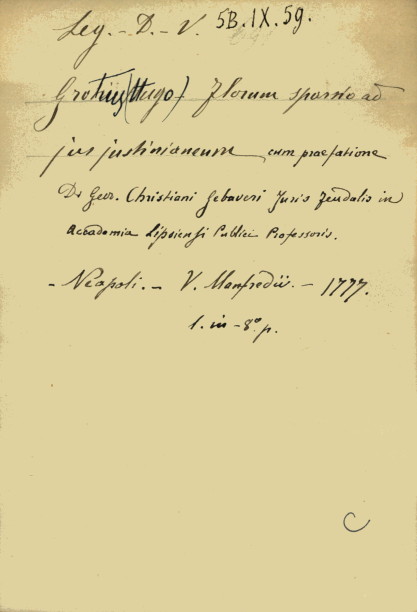 Leg. - D. - V. 5B.IX.59.
Grotius (Hugo) Florum sparsio ad
jus justinianeum cum praefatione
Dr Geor. Christiani Gebaveri Juris Feudalis in
Accademia Lipsiensi Publici Professoris.
- Neapoli. - V. Manfredii. - 1777.
1. in - 8.° p.
C